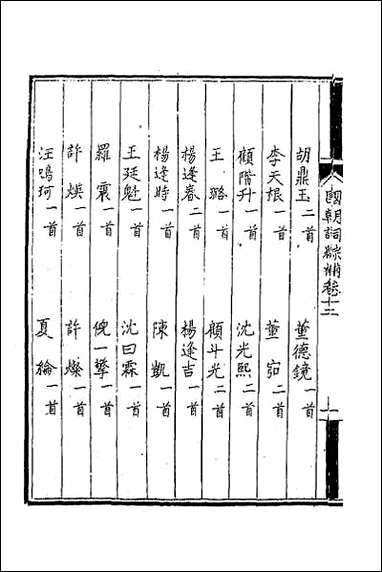 國朝詞綜補卷十三
胡鼎玉二首 董德鏡一首
李天根一首 董㓂二首
顧階升一首 沈光熙二首
王璐一首 顧斗光二首
楊逢春二首 楊逢吉一首
楊逢時一首 陳凱一首
王廷魁一首 沈曰霖一首
羅震一首 倪一擎一首
許煐一首 許燦一首
汪鳴珂一首 夏綸一首